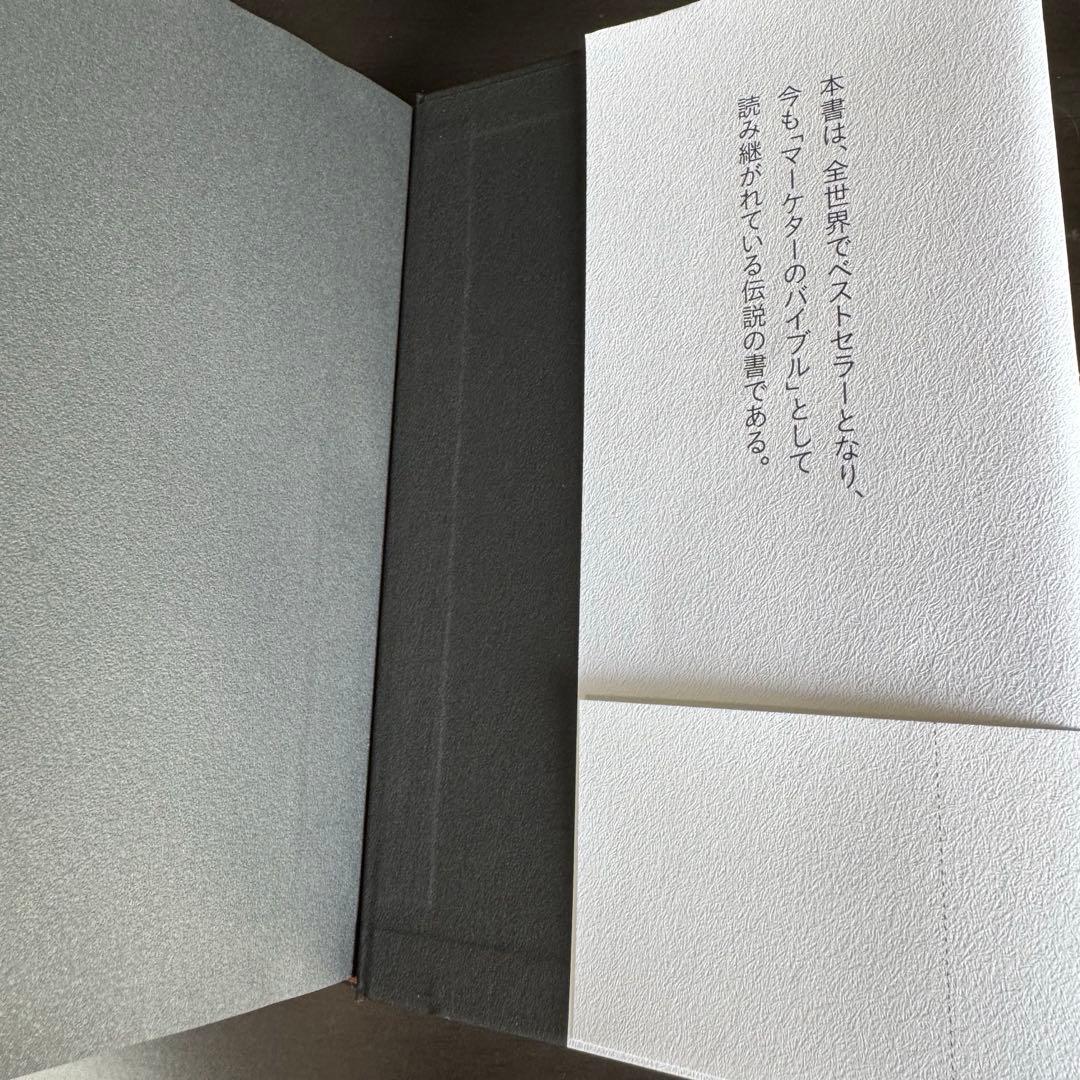 本書は、全世界でベストセラーとなり、
今も「マーケターのバイブル」として
読み継がれている伝説の書である。